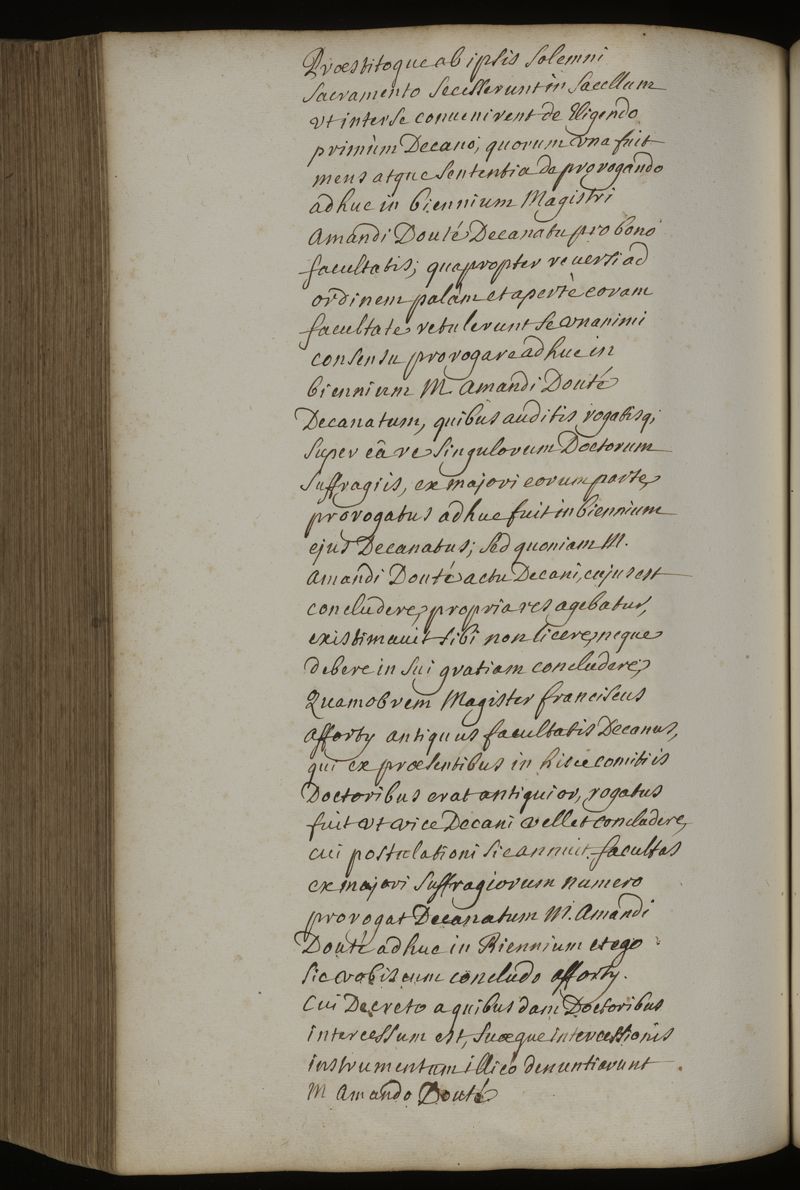 Præstitoque ab ipsis solemni
sacramento secesserunt in sacellum
vt inter se convenirent de Eligendo
primùm Decano; quorum vna fuit
mens atque sententia de prorogando
adhuc in biennium Magistri
Amandi Douté Decanatu pro bono
facultatis; quapropter reversi ad
ordinem palàm et apertè coram
facultate retulerunt se vnanimi
consensu prorogare adhuc in
biennium M. Amandi Douté
Decanatum, quibus auditis rogatisq;
super eâ re singulorum Doctorum
suffragiis, ex majori eorum parte,
prorogatus adhuc fuit in biennium
ejus Decanatus; sed quoniam M.
Amandi Douté actu Decani, cujus est
concludere, propria res agebatur,
existimavit sibi non licere, neque
debere in sui gratiam concludere,
Quamobrem Magister franciscus
Afforty antiquus facultatis Decanus,
qui ex præsentibus in hisce comitiis
Doctoribus erat antiquior, rogatus
fuit vt vice Decani vellet concludere,
cui postulationi sic annuit. facultas
ex majori suffragiorum numero
prorogat Decanatum M. Amandi
Douté adhuc in Biennium et ego
sic vobiscum concludo Afforty.
Cui Decreto a quibusdam Doctoribus
intercessum est, suæque intercessionis
instrumentum illico denuntiarunt
M Amando Douté